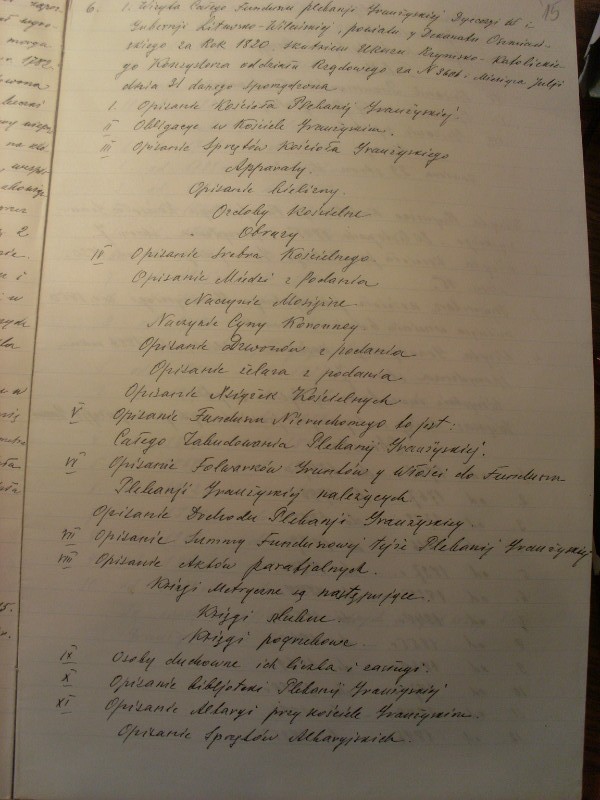 15
6. 1. Wizyta Całego Funduszu plebanji Graużyskiej Dyecezi
Gubernji Litewsko-Wileńskiej, powiatu y Dekanatu Oszmiań-
skiego za Rok 1820. skutkiem Ukazu Rzymsko-Katolickie-
go Konsystorza oddziału Rządowego za N 3606 i Miesiąca Julji
dnia 31 danego sporządzona
I. Opisanie Kościoła Plebanij Graużyskiej.
II Obligacye w Kościele Graużyskim.
III Opisanie Sprzętów Kościoła Graużyskiego
Apparaty.
Opisanie bielizny.
Ozdoby Kościelne
Obrazy.
IV Opisanie Srebra Kościelnego.
Opisanie Miedzi z Podania
Naczynie Mosiężne.
Naczynie Cyny Koronney
Opisanie Dzwonów z podania
Opisanie żelaza z podania
Opisanie Książek Kościelnych
V Opisanie Funduszu Nieruchomego to jest:
Całego Zabudowania Plebanij Graużyskiej.
VI Opisanie Folwarków Gruntów y Włości do Funduszu
Plebanji Graużyskiej należących
Opisanie Dochodu Plebanji Graużyskiey.
VII Opisanie Summy Funduszowej tejże Plebanij Graużyskiej
VIII Opisanie Aktów parafjalnych.
Księgi Metryczne są następujące.
Księgi ślubne
Księgi pogrzebowe.
IX Osoby duchowne ich liczba i zasługi.
X Opisanie bibljoteki Plebanij Graużyskiej
XI Opisanie Altaryi przy kościele Graużyskim.
Opisanie Sprzętów Altaryjskich.